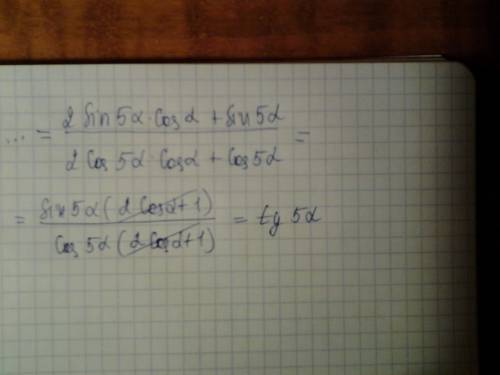 ... = (2 sin 5α · cos α + sin 5α) / (2 cos 5α · cos α + cos 5α) =
= sin 5α (2 cos α + 1) / cos 5α (2 cos α + 1) = tg 5α